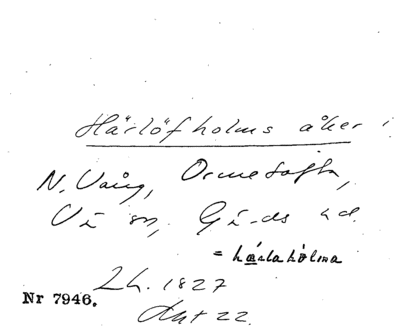 Härlöfholms åker i
N. Vång, Ormetofta,
Vi sn, Gä-ds hd.
= härlahòlma
Lh. 1827
Nr 7946.
Akt 22.